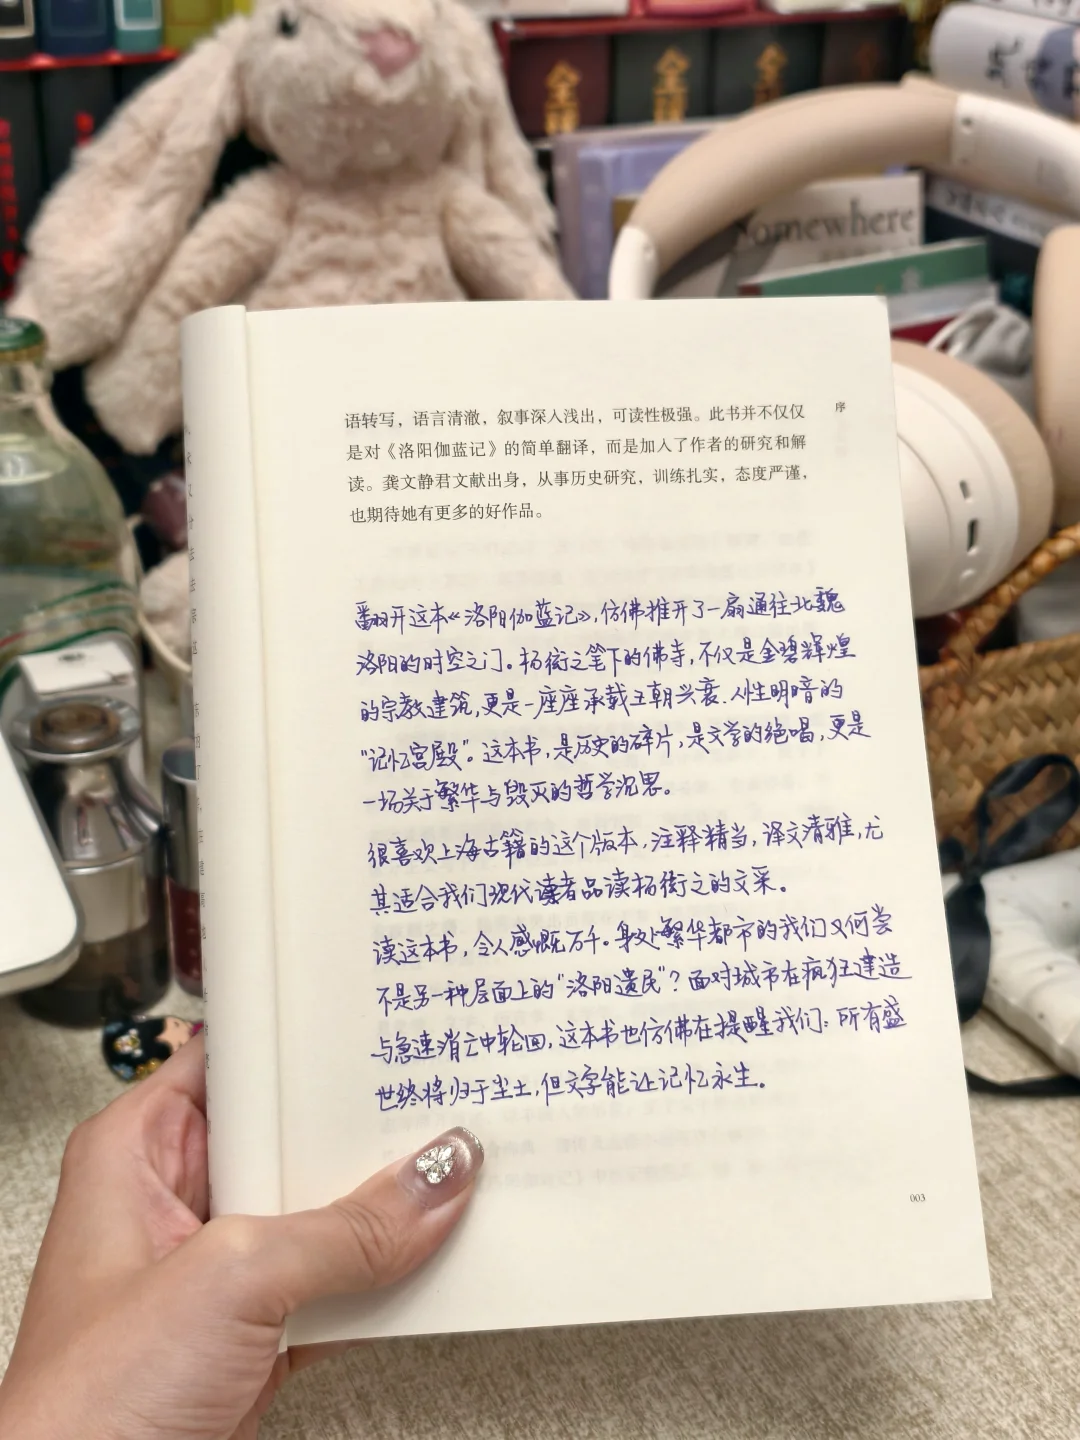 全球
全球
全球
Somewhere
序
语转写，语言清澈，叙事深入浅出，可读性极强。此书并不仅仅
是对《洛阳伽蓝记》的简单翻译，而是加入了作者的研究和解
读。龚文静君文献出身，从事历史研究，训练扎实，态度严谨，
也期待她有更多的好作品。
翻开这本《洛阳伽蓝记》，仿佛推开了一扇通往北魏
洛阳的时空之门。杨衒之笔下的佛寺，不仅是金碧辉煌
的宗教建筑，更是一座座承载王朝兴衰、人性明暗的
“记忆宫殿”。这本书，是历史的碎片，是文学的绝唱，更是
一场关于繁华与毁灭的哲学沉思。
很喜欢上海古籍的这个版本，注释精当，译文清雅，尤
其适合我们现代读者品读杨衒之的文采。
读这本书，令人感慨万千。身处繁华都市的我们又何尝
不是另一种层面上的“洛阳遗民”？面对城市在疯狂建造
与急速消亡中轮回，这本书也仿佛在提醒我们：所有盛
世终将归于尘土，但文字能让记忆永生。
003